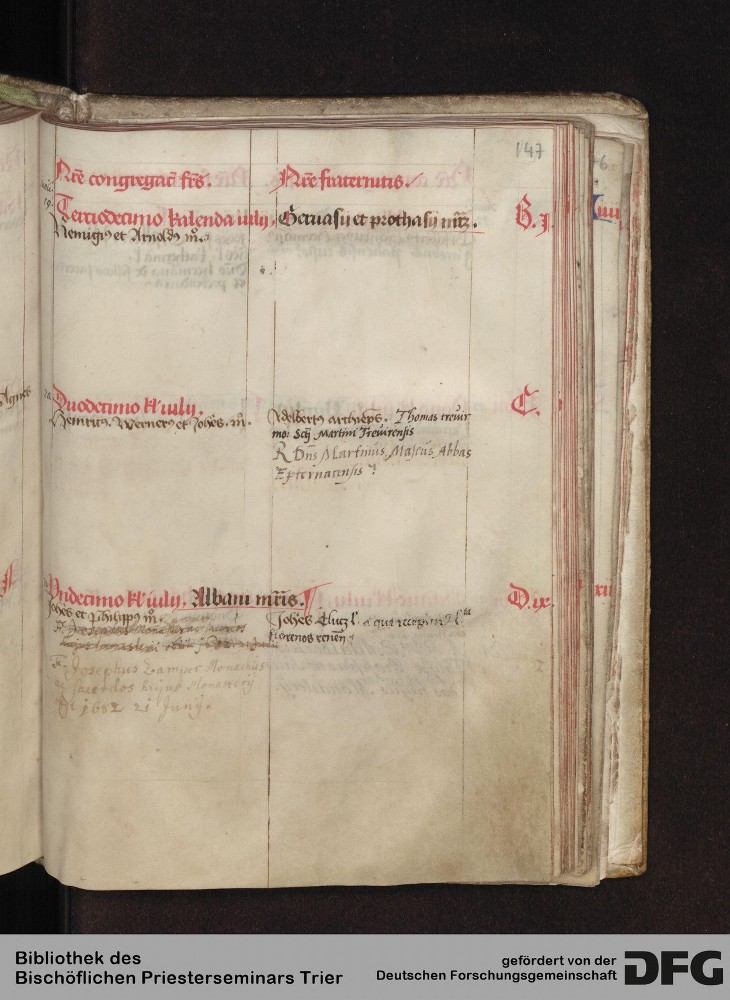 147
Nr̄e congregac̄ fr̄s. Nr̄e fraternitis.
19.
Terciodecimo kalenda iulij. Geruasij et prothasij mr̄z. B. j.
Remigiꝰ et Arnoldꝰ m̄.
Duodecimo kl' iulij. C.
Henricꝰ. Wernerꝰ et Joh̄es. m̄.
Adelbertꝰ archiep̄s. Thomas trevir
mo: Scj Martini Treuirensis
R Dn̄s Martinus Maſcus Abbas
Epternacensis
Undecimo kl' iulij. Albani mr̄is. D. ix.
Joh̄es et Philippꝰ m̄.
Joh̄es Clucz
F. Josephus Lamper Monachus
et sacerdos huius Monasterij
1682 21 Junij.
Agnes
iiii
xii
Bibliothek des
Bischöflichen Priesterseminars Trier
gefördert von der
Deutschen Forschungsgemeinschaft
DFG